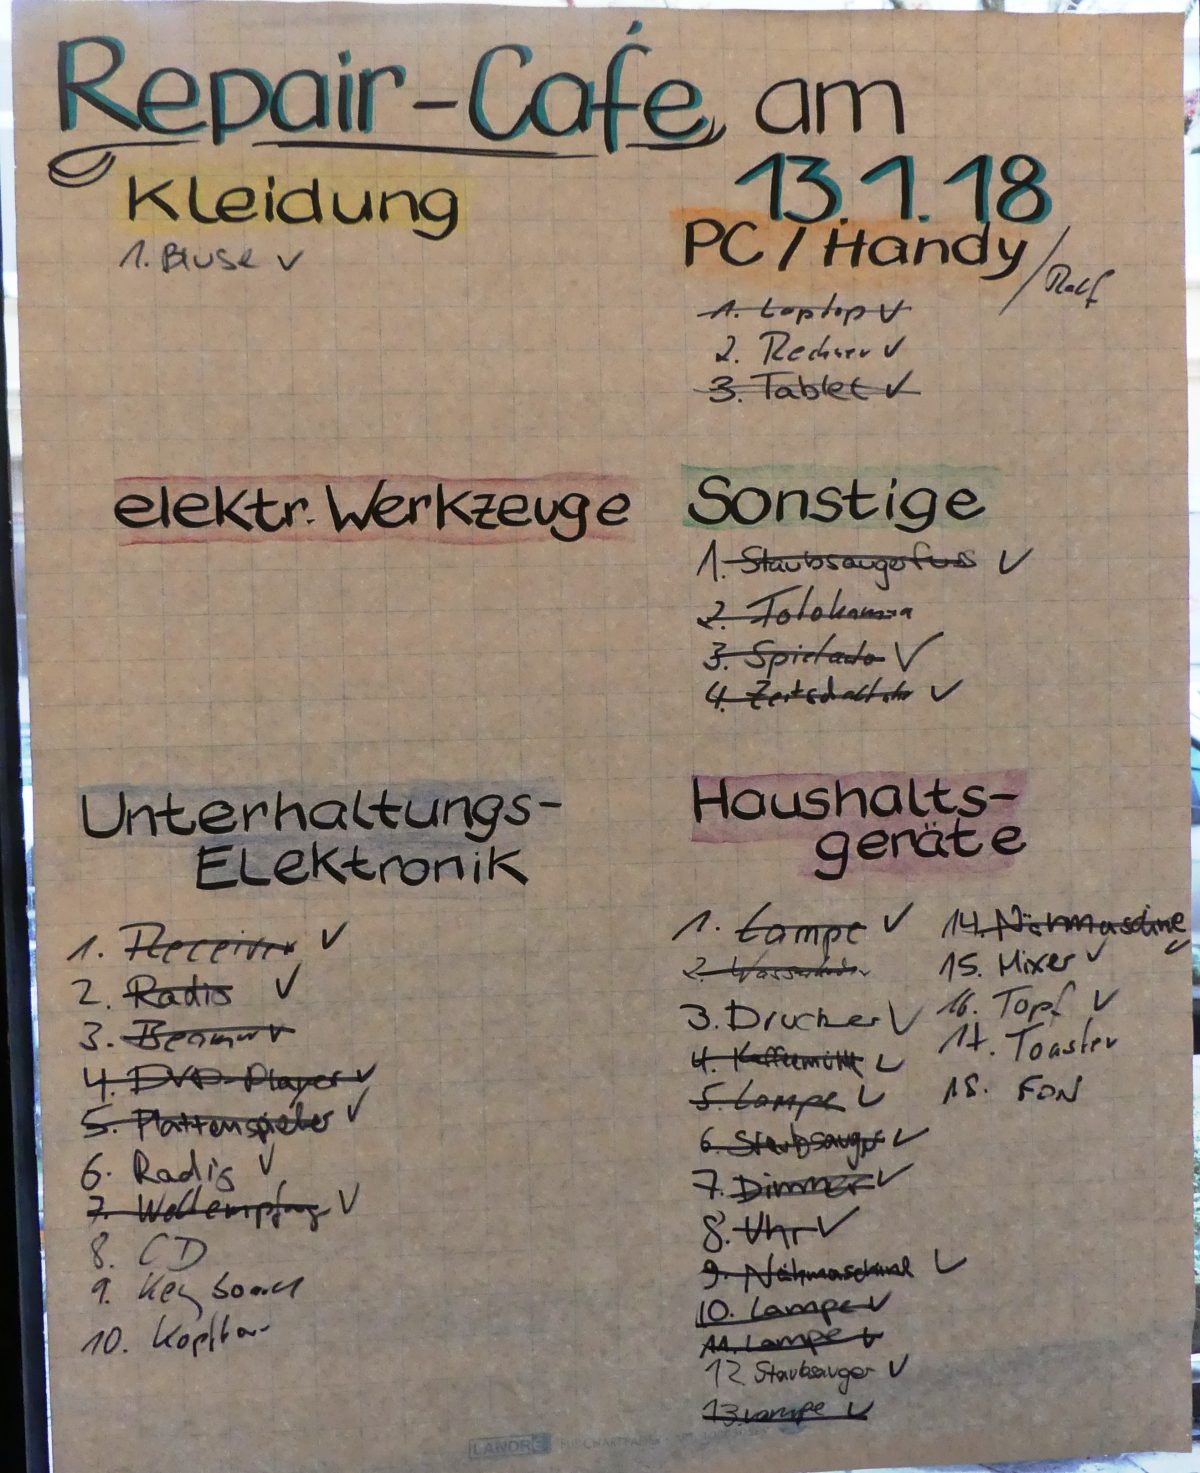 Repair-Café am
13.1.18
Kleidung
1. Bluse ✓
PC / Handy / Ralf
1. Laptop ✓
2. Rechner ✓
3. Tablet ✓
elektr. Werkzeuge
Sonstige
1. Staubsaugerfuss ✓
2. Fotokamera
3. ✓
4. Zeitschaltuhr ✓
Unterhaltungs-
Elektronik
1. Receiver ✓
2. Radio ✓
3. Beamer ✓
4. DVD-Player ✓
5. Plattenspieler ✓
6. Radio ✓
7. Weltempfäng ✓
8. CD
9. Keyboard
10.
Haushalts-
geräte
1. Lampe ✓
2.
3. Drucker ✓
4. Kaffeemühle ✓
5. Lampe ✓
6. Staubsauger ✓
7. Dimmer ✓
8. Uhr ✓
9. Nähmaschine ✓
10. Lampe ✓
11. Lampe ✓
12 Staubsauger ✓
13. Lampe ✓
14. Nähmaschine ✓
15. Mixer ✓
16. Topf ✓
17. Toaster
18. FÖN
LANDRÉ